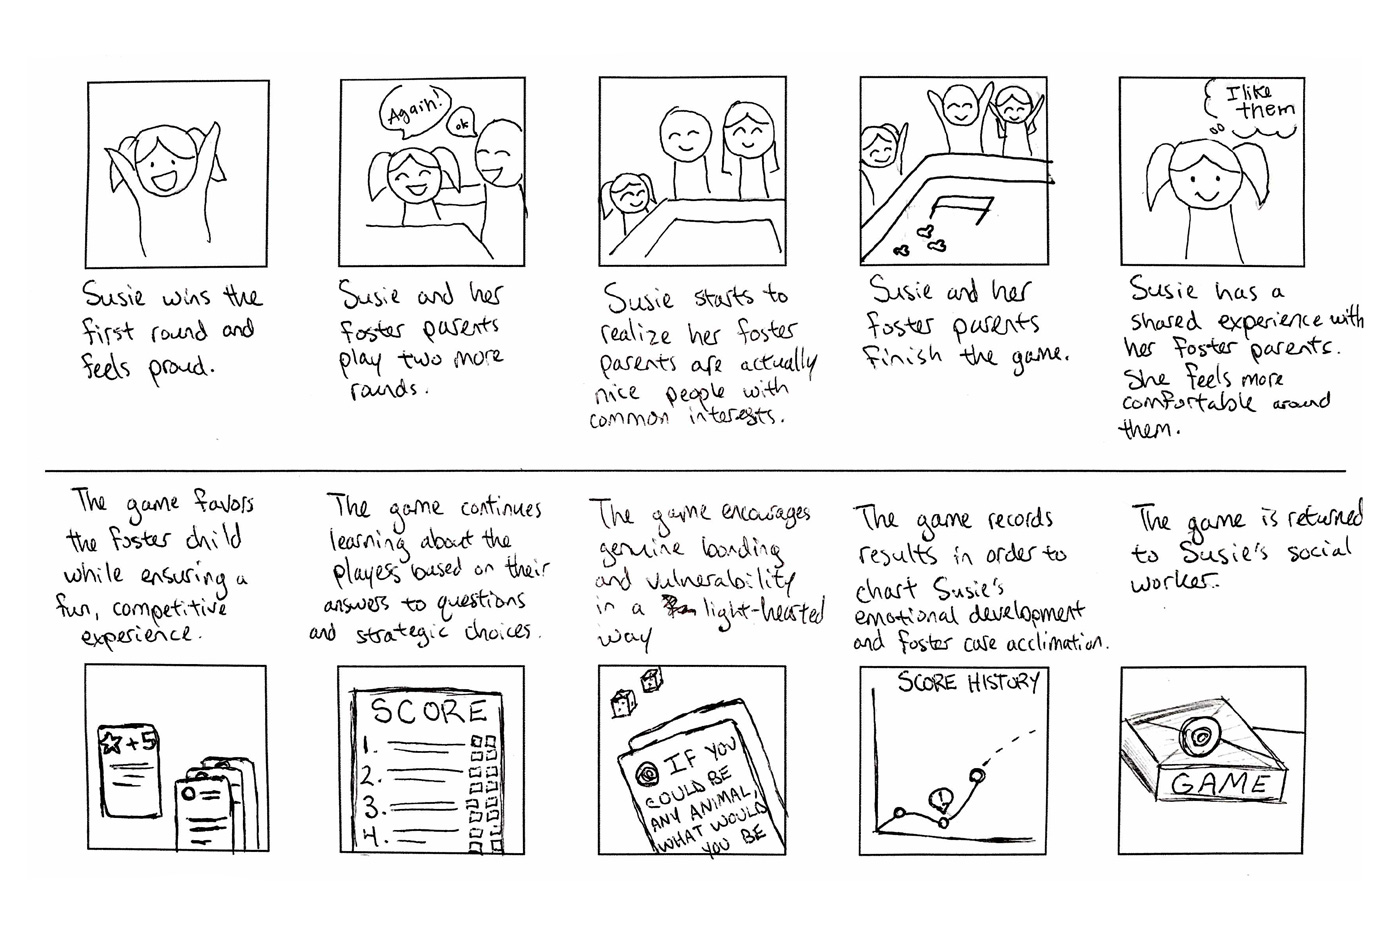 Again!
ok
I like
them
Susie wins the
first round and
feels proud.
Susie and her
foster parents
play two more
rounds.
Susie starts to
realize her foster
parents are actually
nice people with
common interests.
Susie and her
foster parents
finish the game.
Susie has a
shared experience with
her foster parents.
She feels more
comfortable around
them.
The game favors
the foster child
while ensuring a
fun, competitive
experience.
The game continues
learning about the
players based on their
answers to questions
and strategic choices.
The game encourages
genuine bonding
and vulnerability
in a light-hearted
way
The game records
results in order to
chart Susie's
emotional development
and foster care acclimation.
The game is returned
to Susie's social
worker.
☆+5
SCORE
1.
2.
3.
4.
IF YOU
COULD BE
ANY ANIMAL,
WHAT WOULD
YOU BE
SCORE HISTORY
!
GAME